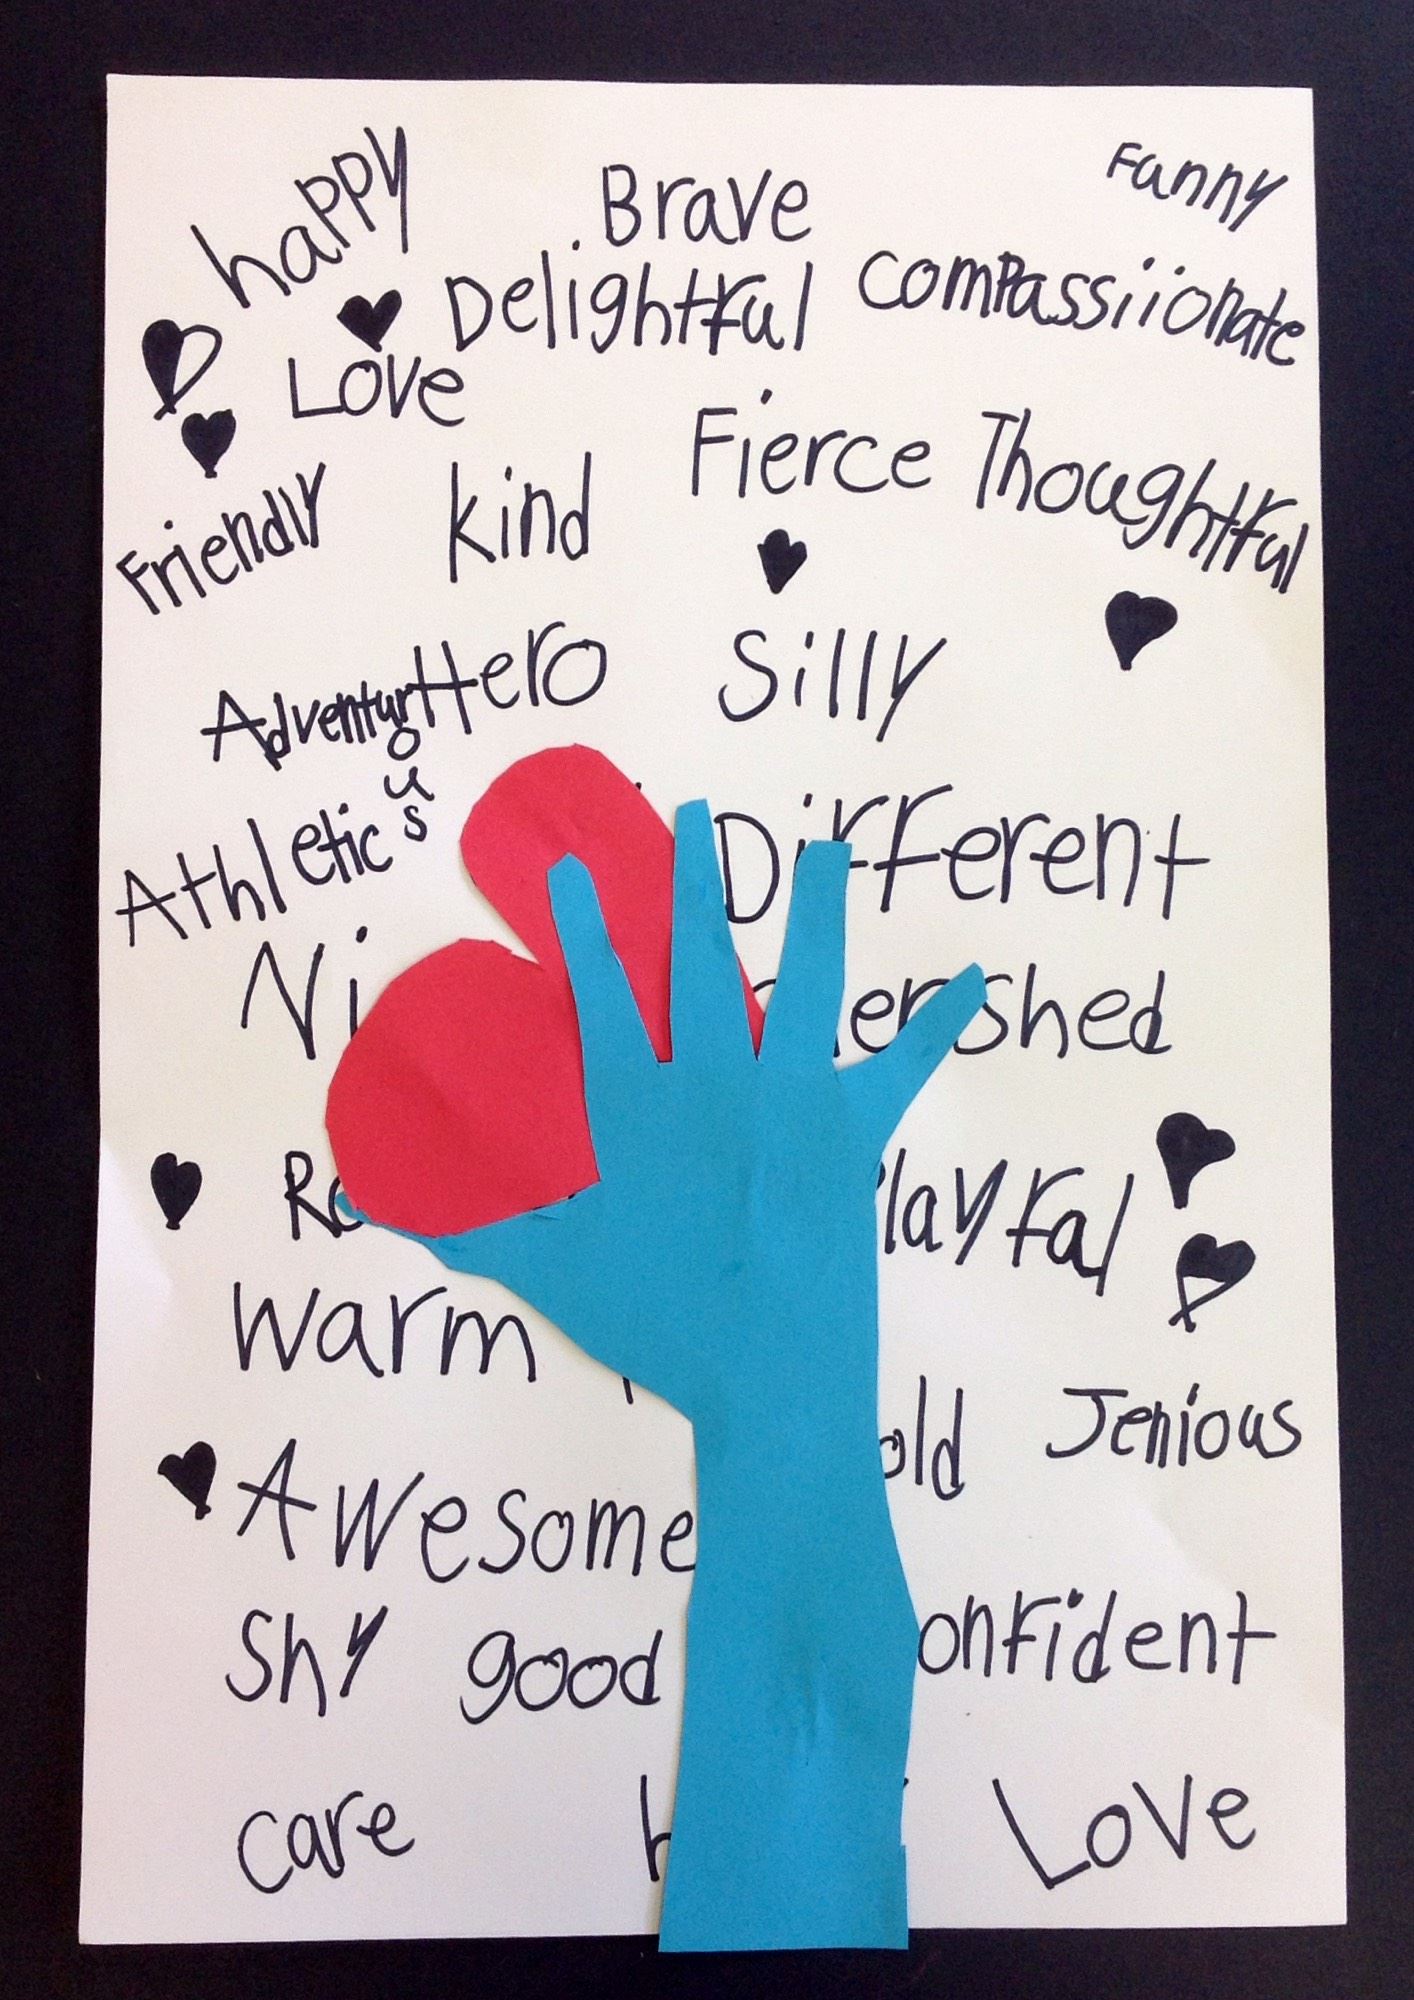 happy Brave Funny
Delightful Compassiionate
Love
Fierce Thoughtful
Friendly Kind
Adventurous Hero Silly
Athletic Different
shed
Playful
Warm
old Jenious
Awesome
Shy good onfident
Care Love